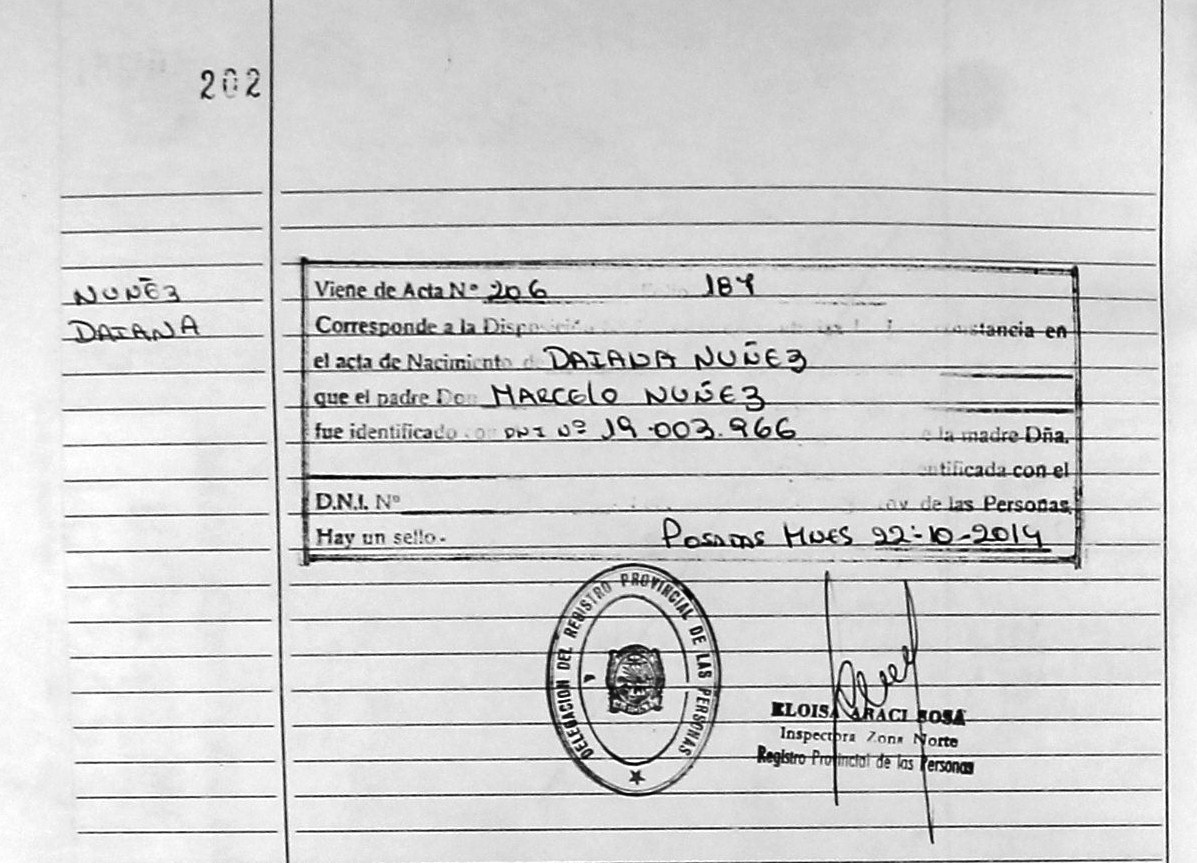 202
NUÑEZ
DAIANA
Viene de Acta Nº 206 187
Corresponde a la stancia en
el acta de Nacimiento d DAIANA NUÑEZ
que el padre Don MARCELO NUÑEZ
fue identificado con DNI Nº 19.003.966 la madre Dña.
ntificada con el
D.N.I. Nº de las Personas.
Hay un sello.- POSADAS MNES 22-10-2014
DELEGACION DEL REGISTRO PROVINCIAL DE LAS PERSONAS
ELOISA ARACI SOSA
Inspectora Zona Norte
Registro Provincial de las Personas